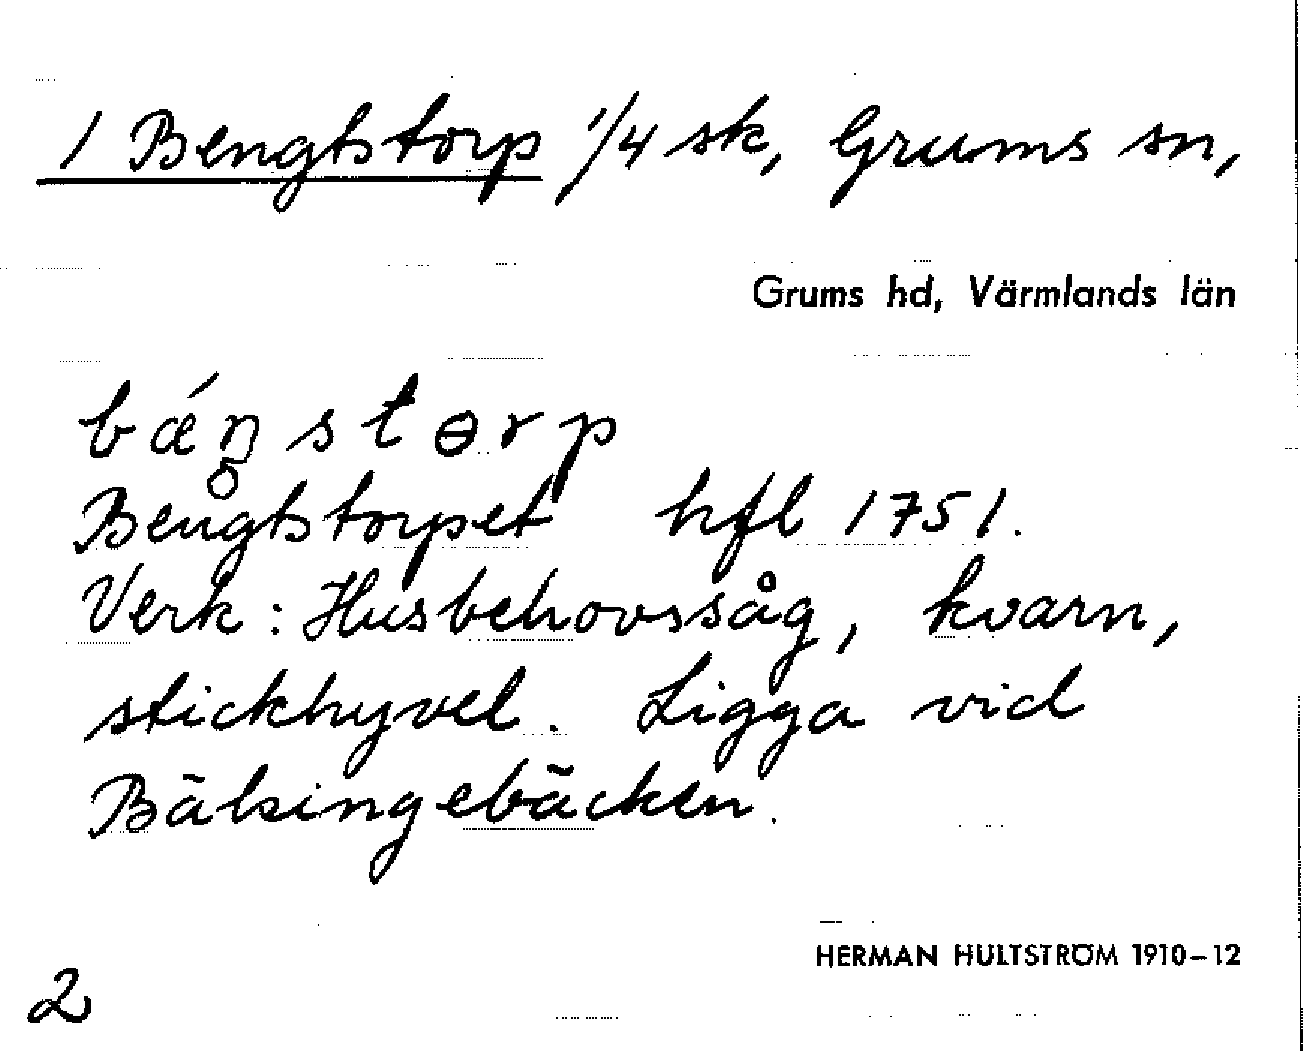 1 Bengtstorp 1/4 sk, Grums sn,
Grums hd, Värmlands län
bǽŋ̊storp
Bengtstorpet hfl 1751.
Verk: Husbehovssåg, kvarn,
stickhyvel. Ligga vid
Bälsingebäcken.
HERMAN HULTSTRÖM 1910–12
2